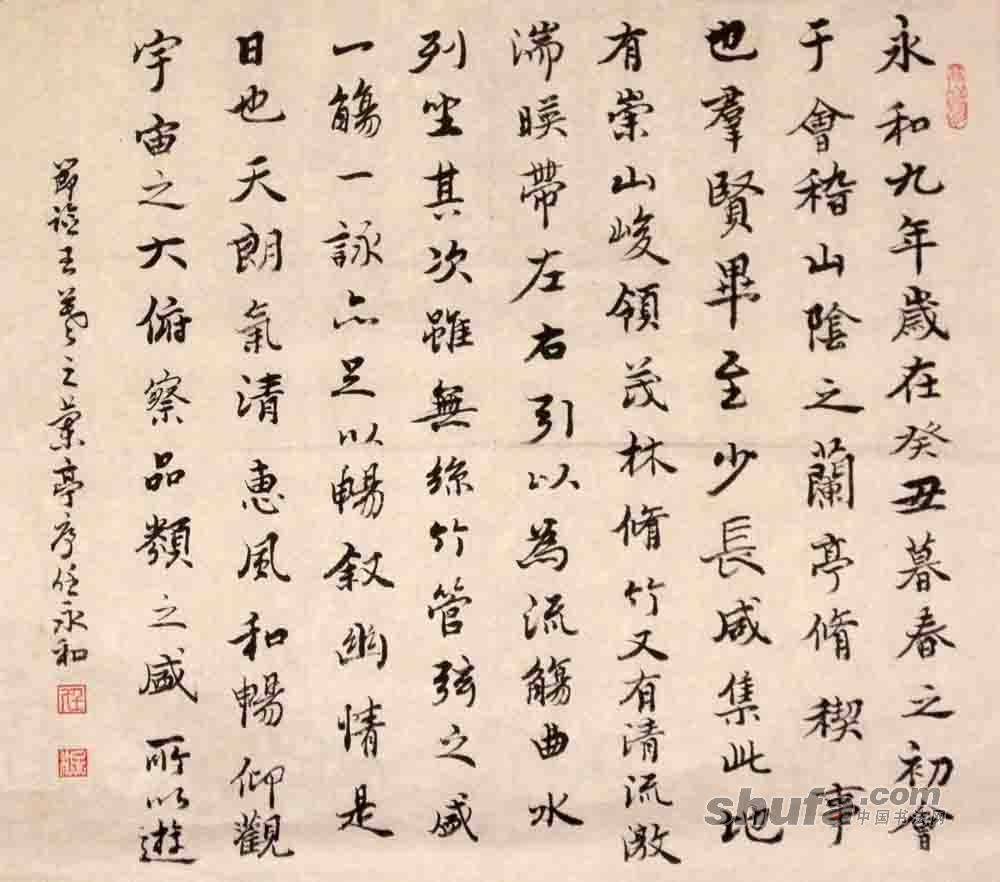 永和九年歲在癸丑暮春之初會
于會稽山陰之蘭亭脩稧事
也羣賢畢至少長咸集此地
有崇山峻領茂林脩竹又有清流激
湍暎帶左右引以為流觴曲水
列坐其次雖無絲竹管弦之盛
一觴一詠亦足以暢叙幽情是
日也天朗氣清惠風和暢仰觀
宇宙之大俯察品類之盛所以遊
節臨王羲之蘭亭序任永和
shufa.com
中国书法网